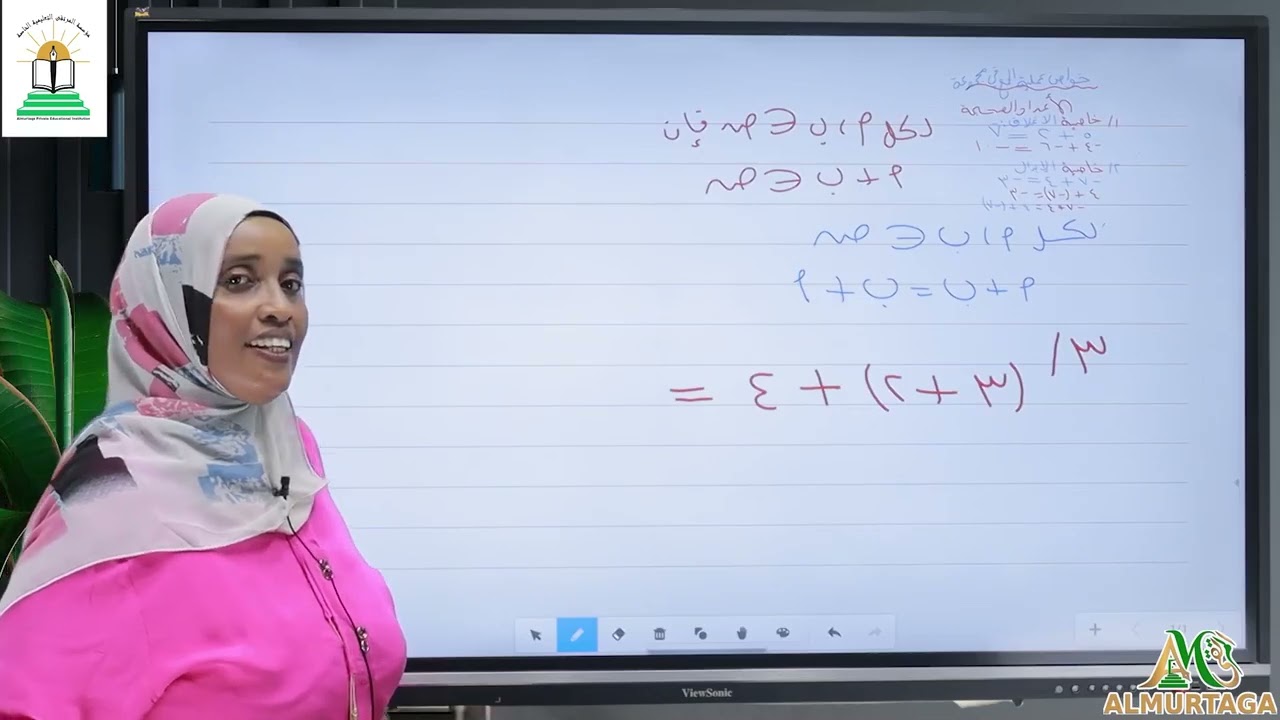 مؤسسة المرتقى التعليمية الخاصة
Almurtaga Private Educational Institution
خواص عملية الجمع في مجموعة
الأعداد الصحيحة
١/ خاصية الانغلاق
٥ + ٢ = ٧
-٤ + -٦ = -١٠
٢/ خاصية الإبدال
-٧ + ٤ = -٣
٤ + (-٧) = -٣
-٧ + ٤ = ٤ + (-٧)
لكل م، ب ∈ صـ فإن
م + ب ∈ صـ
لكل م، ب ∈ صـ
م + ب = ب + م
٣/
(٣ + ٢) + ٤ =
ViewSonic
1/1
AM
ALMURTAGA